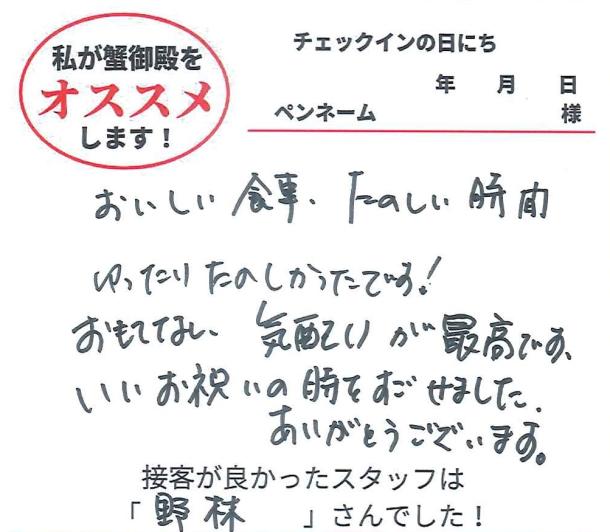 私が蟹御殿を
オススメ
します！
チェックインの日にち
年 月 日
ペンネーム 様
おいしい食事、たのしい時間
ゆったりたのしかったです！
おもてなし、気配りが最高です、
いいお祝いの時をすごせました、
ありがとうございます。
接客が良かったスタッフは
「野林 」さんでした！